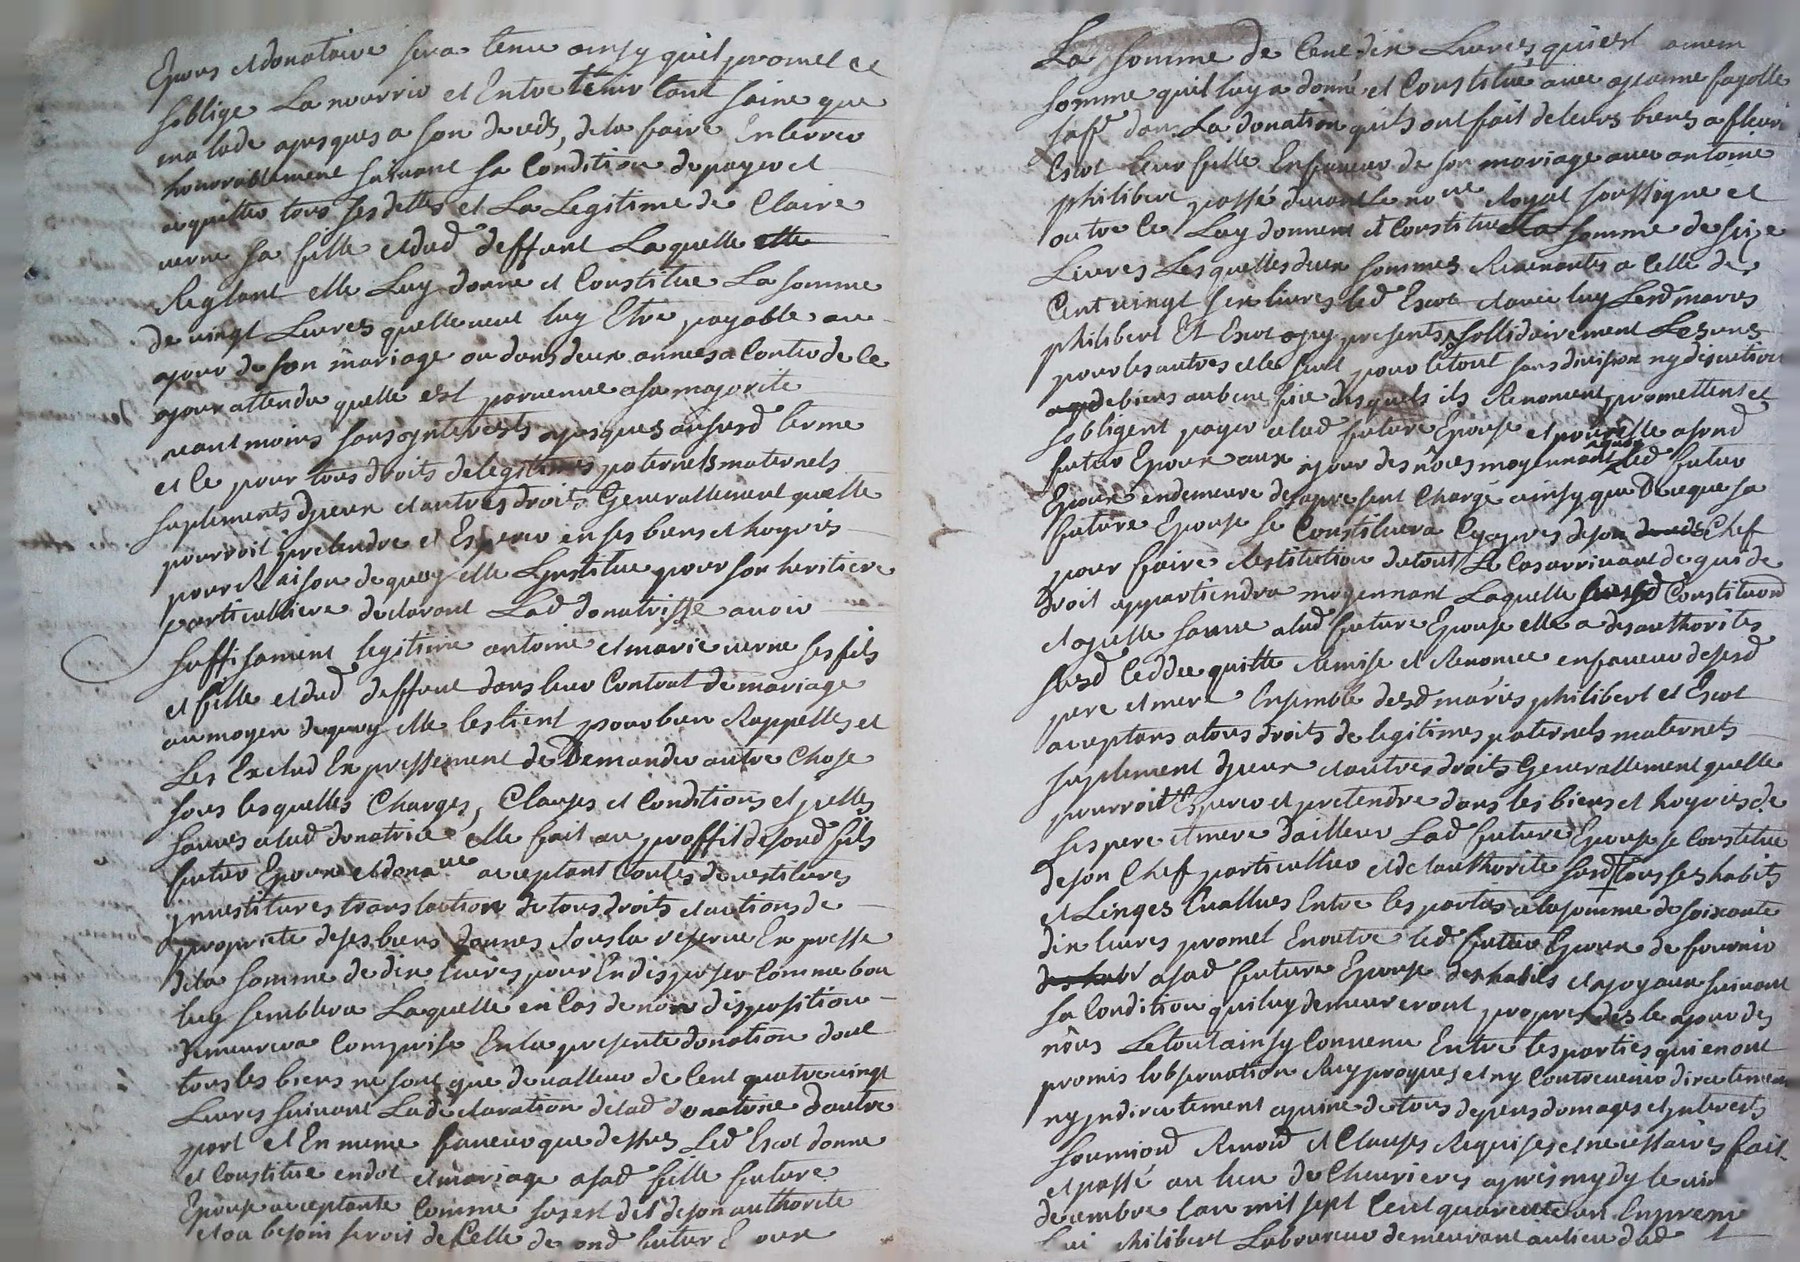 Epoux et donataire sera tenu ainsy quil promet et
soblige La nourrir et Entretenir tant saine que
malade ajusques a son deceds, de la faire Enterrer
honnorablement suivant sa Condition de payer et
aquitter tous ses dettes et La Legitime de Claire
verne sa fille et dud deffunt Laquelle elle
Reglant elle Luy donne et Constitue La somme
de vingt Livres quelle veut luy Etre payable au
ajour de son mariage ou dans deux années a Conter de Ce
ajour attendu quelle est parvenue a sa majorite
neant moins sans ajnterests ajusques aususd terme
et Ce pour tous droits de legitimes paternels maternels
suplements djceux et autres droits Generallement quelle
pourroit pretendre et Esperer en ses biens et hoyris
pour Raison de quoy elle Lynstitue pour son heritiere
particulliere declarant Lad donatrisse avoir
suffisament legitimé antoine et marie verne ses fils
et fille et dud deffunt dans leur Contrat de mariage
au moyen de quoy elle les tient pour bien Rappellés et
Les Exclud Expressement de Demander autre Chose
sous lesquelles Charges, Clauses et Conditions et pelles
sauves alad donatrice elle fait au proffit desond fils
futur Epoux et dona.re acceptant toutes devestitures
jnvestitures translation de tous droits et actions de
propriete de ses biens donnés sous la reserve Expresse
dela somme de dix livres pour En disposer Comme bon
luy semblera Laquelle en Cas de non disposition
demeurera Comprise En la presente donation dont
tous les biens ne sont que de valleur de Cent quatre vingt
Livres suivant La declaration de lad donatrice d'autre
part et En meme faveur que dessus Led Escot donne
et Constitue en dot et mariage asad fille future
Epouse acceptante Comme susest dit deson authorité
et au besoin seroit de Celle de sond futur Epoux
La somme de Cent dix Livres quiest amem
somme quil luy a donné et Constitué avec ajeanne fayolle
saf.e dans La donation quils ont fait de leurs biens a fleurie
Escot leur fille En faveur de son mariage avec antoine
philibert passé devant le no.re Royal soussigné et
outre Ce Luy donnent et Constituent la somme de size
Livres Lesquelles deux sommes Revenantes a Celle de
Cent vingt six livres led Escot et avec luy Lesd mariés
philibert Et Escot ajcy presents sollidairement Les uns
pour les autres et les seul pour le tout sans division ny discution
de biens au benefice desquels ils Renoncent promettent et
sobligent payer alad future Epouse et pour Elle asond
futur Epoux aux ajour des nôces moyennant quoy Led futur
Epoux en demeure desapresent Chargé ainsy que De ce que sa
future Epouse se Constituera Cyapres deson Chef
pour faire Restitution du tout Le Cas arrivant de qui de
droit appartiendra moyennant Laquelle susd Constituon
et ajcelle sauve alad future Epouse elle a des authorites
susd Ceddee quitte Remise et Renonce en faveur de sesd
pere et mere Ensemble desd mariés philibert et Escot
acceptans a tous droits de legitimes paternels maternels
suplement djceux et autres droits Generallement quelle
pourroit Esperer et pretendre dans les biens et hoyries de
ses pere et mere d'ailleur Lad future Epouse se Constitue
de son Chef particullier et de lauthorité susd tous ses habits
et Linges Evallués Entre les parties a la somme de soixante
dix livres promet En outre led futur Epoux de fournir
asad future Epouse des habits et ajoyaux suivant
sa Condition qui luy demeureront propres dès le ajour des
nôces Le tout ainsy Convenu Entre les parties qui en ont
promis lobservation Reciproque et ny Contrevenir directement
ny jndirectement apeine de tous depens domages et jnterests
soumiond Renond et Clauses Requises et necessaires fait
et passé au lieu de Chevrieres apres mydy le
decembre lan mil sept Cent quarante un En presence
philibert Laboureur demeurant au lieu dud